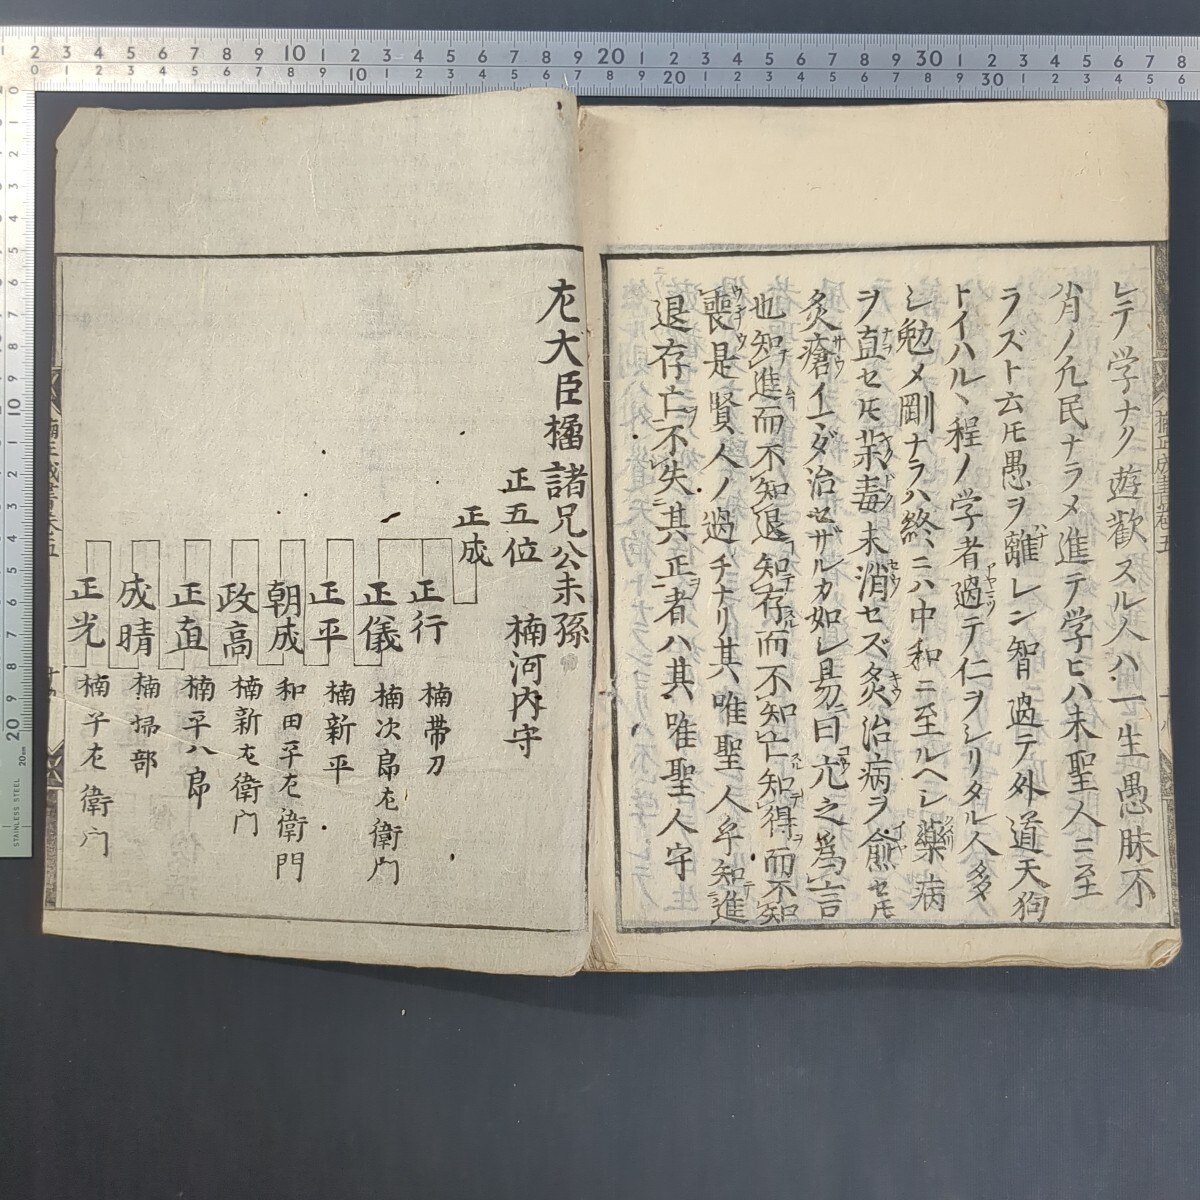 レテ学ナク遊歡スル人ハ一生愚昧不
肖ノ凡民ナラメ進テ学ヒハ未聖人ニ至
ラズト云𪜈愚ヲ離レン智過テ外道天狗
トイハルヽ程ノ学者過テ仁ヲシリタル人多
シ勉メ剛ナラハ終ニハ中和ニ至ルヘシ薬病
ヲ直セ𪜈薬毒未消セズ炙治病ヲ愈セ𪜈
灸瘡イマダ治セザルカ如シ易曰亢之爲言
也知進而不知退知存而不知亡知得而不知
喪是賢人ノ過チナリ其唯聖人乎知進
退存亡不失其正者ハ其唯聖人乎
左大臣橘諸兄公末孫
正五位 楠河内守
正成
正行 楠帯刀
正儀 楠次郎左衛門
正平 楠新平
朝成 和田平左衛門
政高 楠新左衛門
正直 楠平八郎
成晴 楠掃部
正光 楠平左衛門